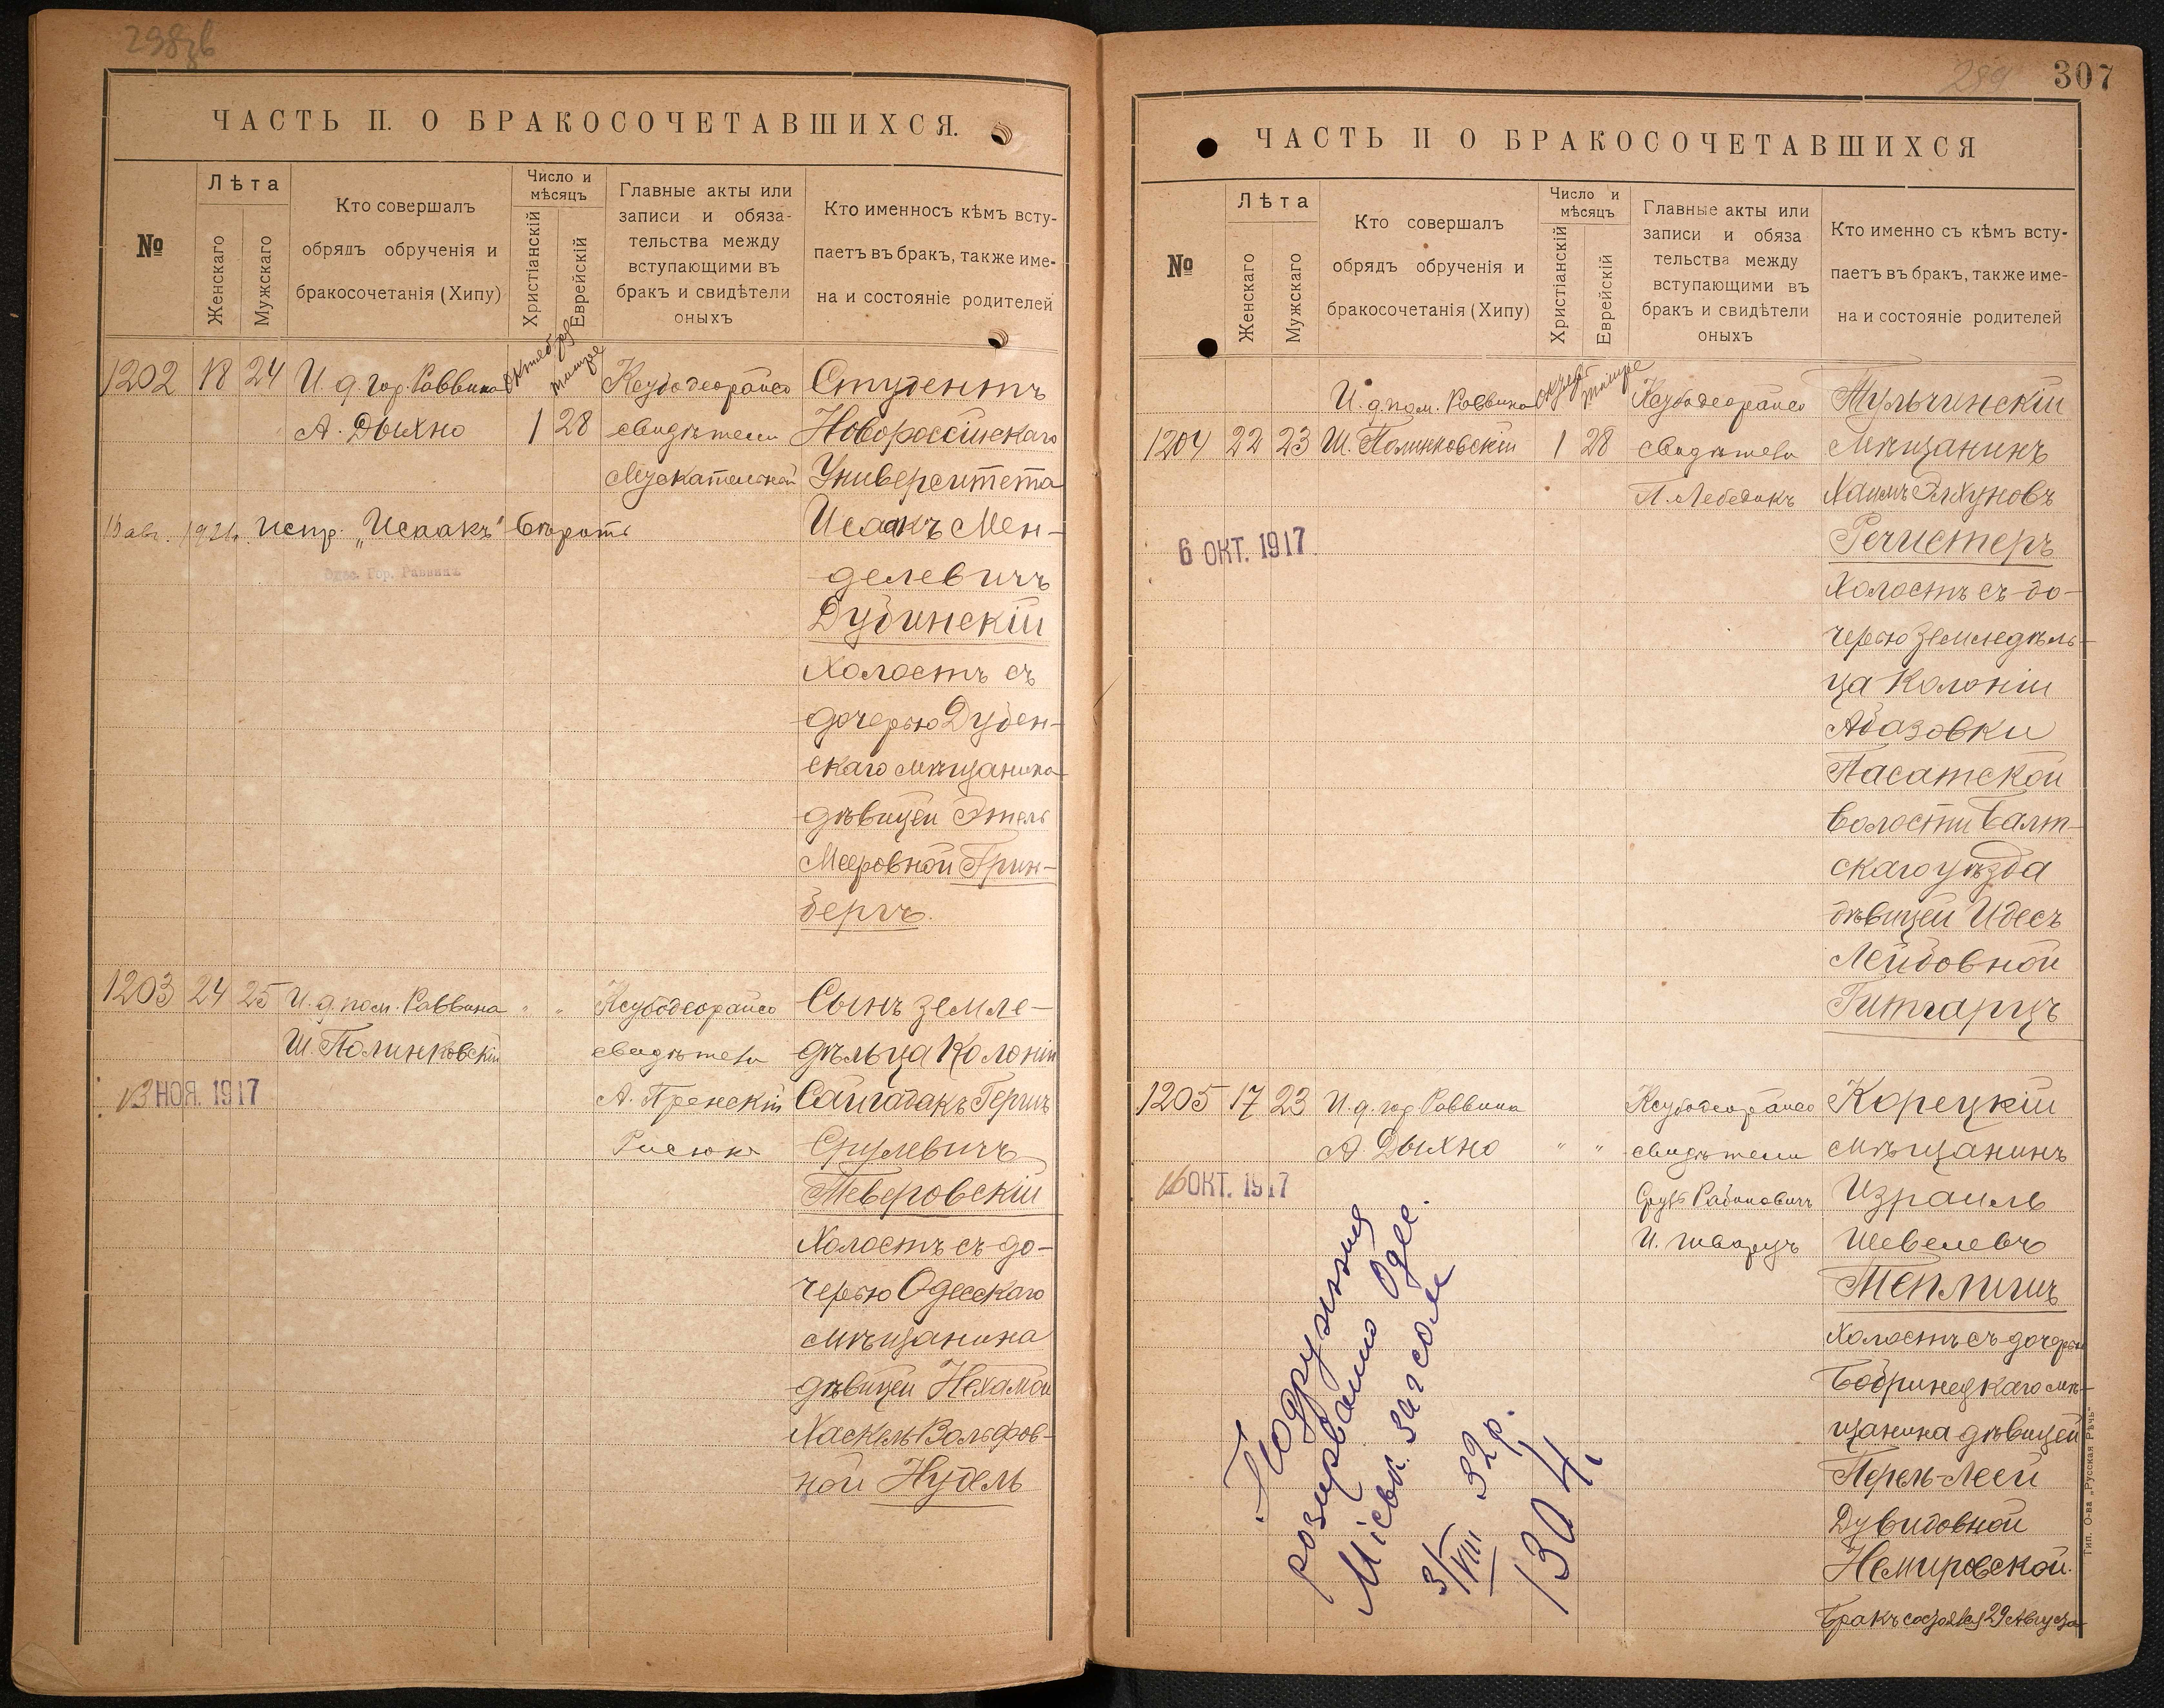 ЧАСТЬ II. О БРАКОСОЧЕТАВШИХСЯ.
№
Лѣта
Женскаго
Мужскаго
Кто совершалъ
обрядъ обрученія и
бракосочетанія (Хипу)
Число и
мѣсяцъ
Христіанскій
Еврейскій
Главные акты или
записи и обяза-
тельства между
вступающими въ
бракъ и свидѣтели
оныхъ
Кто именносъ кѣмъ всту-
паетъ въ бракъ, также име-
на и состояніе родителей
1202 18 24 И. д. гор. Раввина
А. Дыхно
Октября 1
тишре 28
Ксубодеорайсо
свидѣтели
Студентъ
Новороссійскаго
Университета
Исаакъ Мен-
делевичъ
Дубинскій
Холостъ съ
дочерью Дубен-
скаго мѣщанина
дѣвицей Этель
Мееровной Грин-
бергъ.
испр. „Исаакъ" вѣрить
Одес. Гор. Раввинъ
1203 24 25 И. д. пом. Раввина " "
Ш. Полинковскій
13 НОЯ. 1917
Ксубодеорайсо
свидѣтели
А. Пренскій
Сынъ земле-
дѣльца Колоніи
Сайгадакъ Гершъ
Срулевичъ
Теверовскій
Холостъ съ до-
черью Одесскаго
мѣщанина
дѣвицей Нехамой
Хаскель Вольфов-
ной Нудель
307
ЧАСТЬ II О БРАКОСОЧЕТАВШИХСЯ
№
Лѣта
Женскаго
Мужскаго
Кто совершалъ
обрядъ обрученія и
бракосочетанія (Хипу)
Число и
мѣсяцъ
Христіанскій
Еврейскій
Главные акты или
записи и обяза
тельства между
вступающими въ
бракъ и свидѣтели
оныхъ
Кто именно съ кѣмъ всту-
паетъ въ бракъ, также име-
на и состояніе родителей
И. д. пом. Раввина
1204 22 23 Ш. Полинковскій 1 28
тишре
6 ОКТ. 1917
Ксубодеорайсо
свидѣтели
Л. Лебедикъ
Тульчинскій
Мѣщанинъ
Хаимъ Элхуновъ
Речистеръ
Холостъ съ до-
черью Земледѣль-
ца Колоніи
Абазовки
Пасатской
волости Балт-
скаго уѣзда
дѣвицей Идесъ
Лейбовной
Гитгарцъ
1205 17 23 И. д. гор. Раввина
А Дыхно " "
16 ОКТ. 1917
Ксубодеорайсо
свидѣтели
Сруль Рабиновичъ
И. Шварцъ
Корецкій
мѣщанинъ
Израиль
Шевелевъ
Теплишъ
Холостъ съ дочерью
Бобринецкаго мѣ-
щанина дѣвицей
Перель-Леей
Дувидовной
Немировской.
Бракъ состоялся 29 Августа
Подружжия
розирвано Одес.
Міськ. загсом
3/VIII 32 р.
1304
Тип. О-ва „Русская Рѣчь"